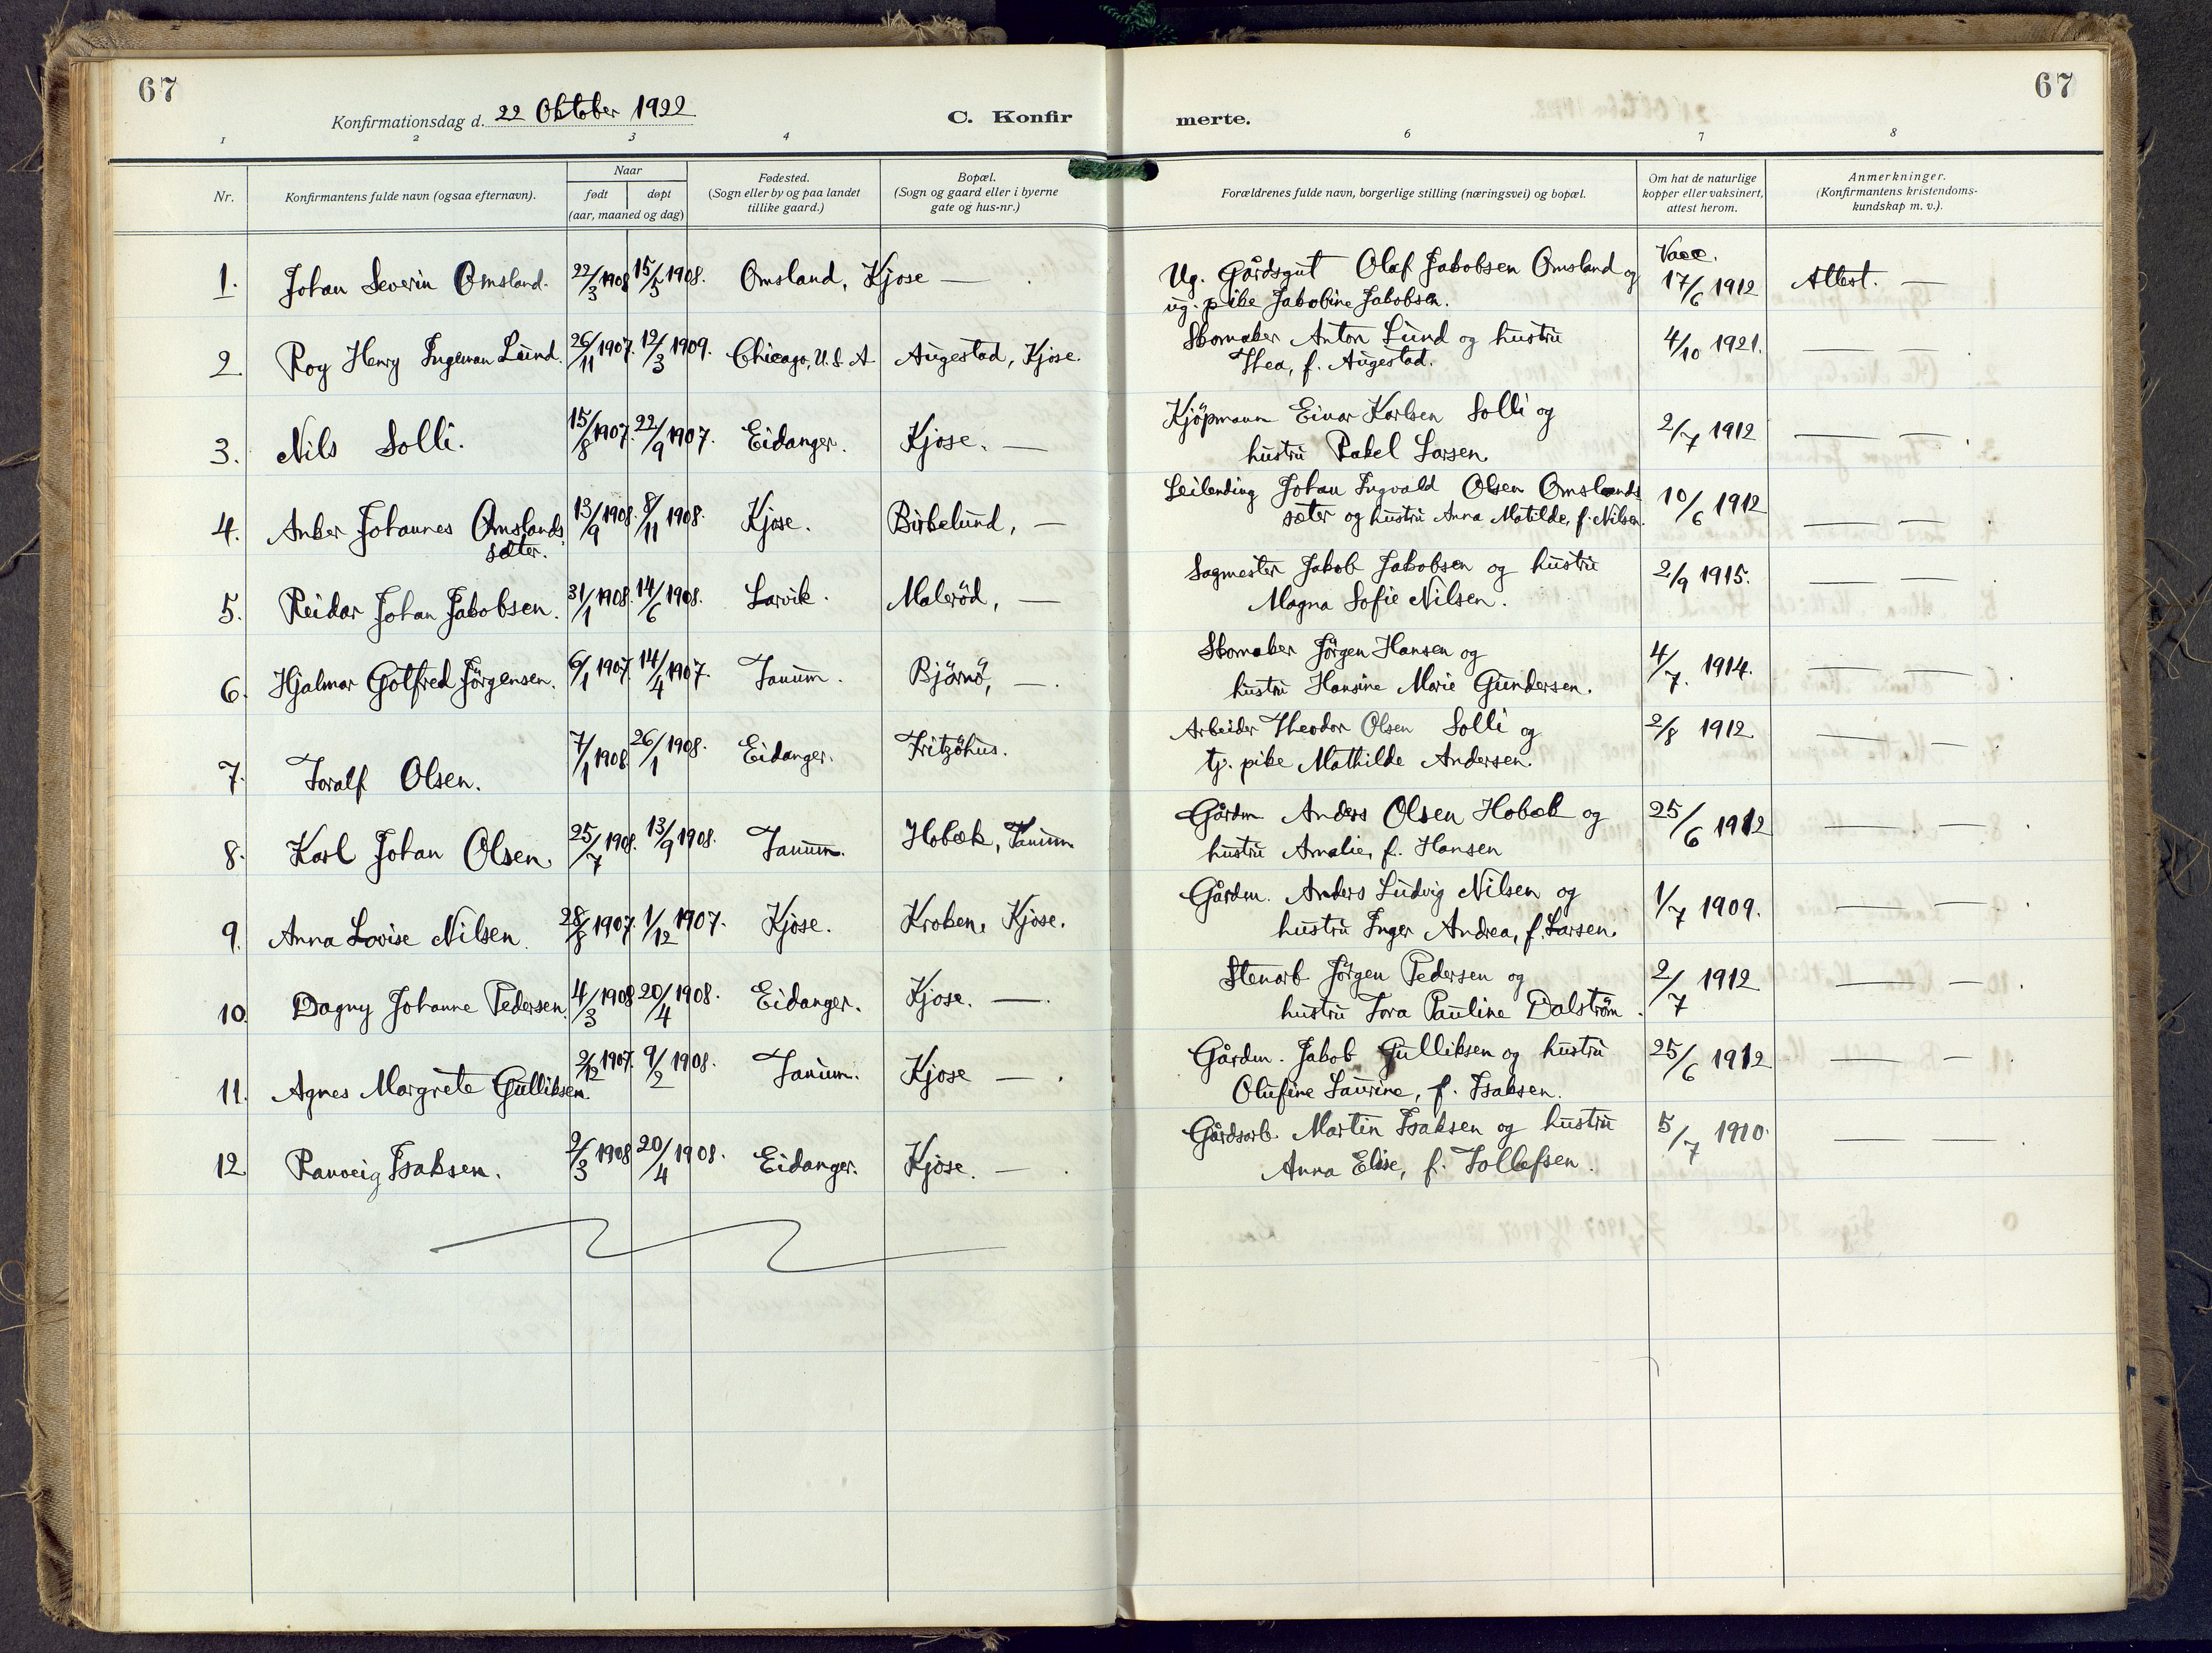 67
67
Konfirmationsdag d. 22 Oktober 1922
C. Konfir
merte.
1 2 3 4 6 7 8
Nr.
Konfirmantens fulde navn (ogsaa efternavn).
Naar
født døpt
(aar, maaned og dag)
Fødested.
(Sogn eller by og paa landet
tillike gaard.)
Bopæl.
(Sogn og gaard eller i byerne
gate og hus-nr.)
Forældrenes fulde navn, borgerlige stilling (næringsvei) og bopæl.
Om hat de naturlige
kopper eller vaksinert,
attest herom.
Anmerkninger.
(Konfirmantens kristendoms-
kundskap m. v.).
1. Johan Severin Omsland. 22/3 1908 15/5 1908. Omsland, Kjose —
Ug. Gårdsgut Olaf Jakobsen Omsland og
ug. pike Jakobine Jakobsen.
Vacc.
17/6 1912 Attest. —
2. Roy Henry Ingeman Lund. 26/11 1907. 12/3 1909. Chicago, U.S.A Augestad, Kjose.
Skomaker Anton Lund og hustru
Thea, f. Augestad.
4/10 1921. — —
3. Nils Solli. 15/8 1907. 22/9 1907. Eidanger. Kjose. —
Kjöpmann Einar Karlsen Solli og
hustru Rakel Larsen.
2/7 1912 — —
4. Anker Johannes Omslands
sæter. 13/9 1908. 8/11 1908. Kjose. Birkelund, —
Leilending Johan Ingvald Olsen Omslands
sæter og hustru Anna Matilde, f. Nilsen.
10/6 1912 — —
5. Reidar Johan Jakobsen. 31/1 1908. 14/6 1908. Larvik. Malerød, —
Sagmester Jakob Jakobsen og hustru
Magna Sofie Nilsen.
2/9 1915. — —
6. Hjalmar Gotfred Jörgensen. 6/1 1907. 14/4 1907. Tanum. Bjørnø, —
Skomaker Jörgen Hansen og
hustru Hansine Marie Gundersen.
4/7. 1914. — —
7. Toralf Olsen. 7/1 1908 26/1 1908. Eidanger. Fritzöhus.
Arbeider Theodor Olsen Solli og
tj. pike Mathilde Andersen.
2/8 1912 — —
8. Karl Johan Olsen. 25/7 1908. 13/9 1908. Tanum. Hobæk, Tanum
Gårdm Anders Olsen Hobæk og
hustru Amalie, f. Hansen
25/6 1912 — —
9. Anna Lovise Nilsen. 28/8 1907. 1/12 1907. Kjose. Kroken, Kjose.
Gårdm. Anders Ludvig Nilsen og
hustru Inger Andrea, f. Larsen.
1/7 1909. — —
10. Dagny Johanne Pedersen. 4/3 1908 20/4 1908. Eidanger. Kjose. —
Stenarb Jörgen Pedersen og
hustru Tora Pauline Dalström.
2/7 1912 — —
11. Agnes Margrete Gulliksen. 2/12 1907. 9/2 1908. Tanum. Kjose —
Gårdm. Jakob Gulliksen og hustru
Olufine Laurine, f. Isaksen.
25/6 1912 — —
12 Ranveig Isaksen. 2/3 1908 20/4 1908. Eidanger. Kjose. —
Gårdsarb. Martin Isaksen og hustru
Anna Elise, f. Tollefsen.
5/7 1910. — —